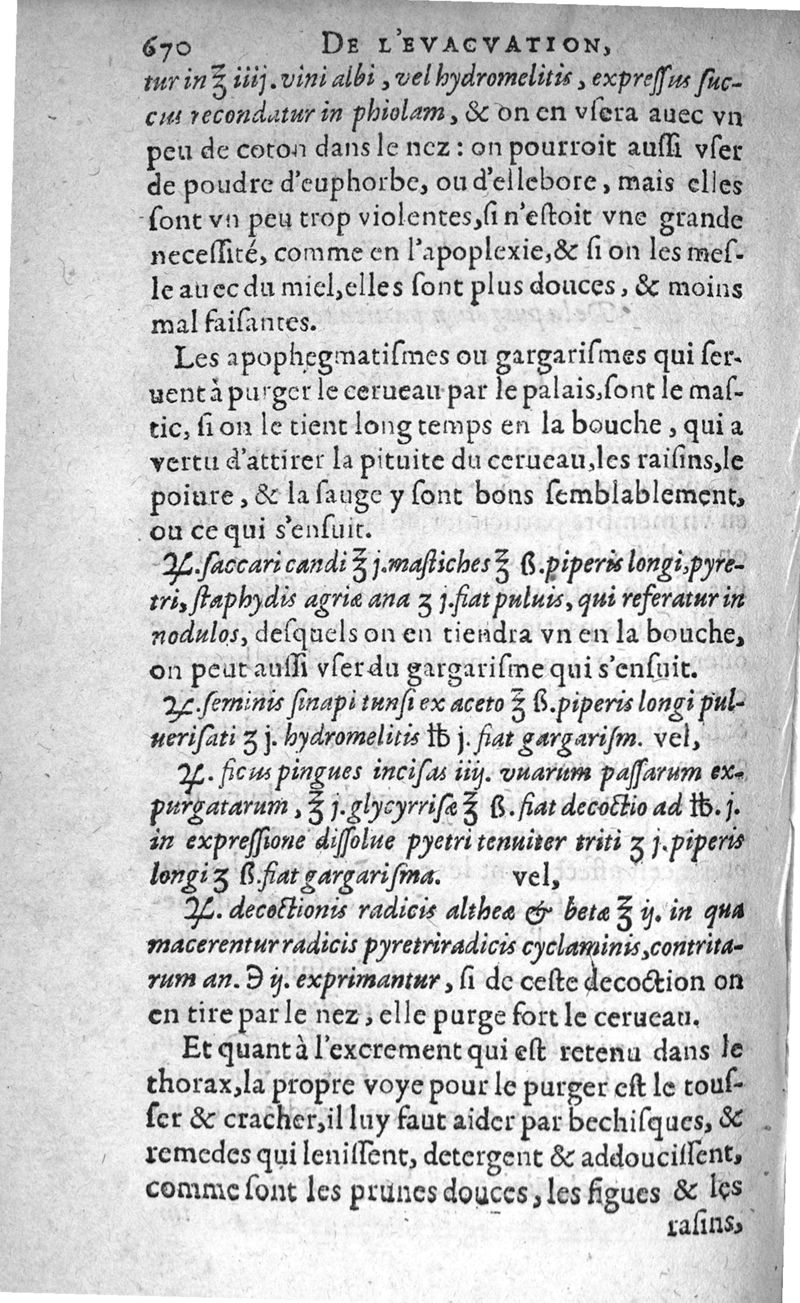 670 DE L'EVACVATION,
tur in ℥ iiij. vini albi, vel hydromelitis, expreſſus ſuc-
cus recondatur in phiolam, & on en vſera auec vn
peu de coton dans le nez : on pourroit auſſi vſer
de poudre d'euphorbe, ou d'ellebore, mais elles
ſont vn peu trop violentes, ſi n'eſtoit vne grande
neceſſité, comme en l'apoplexie, & ſi on les meſ-
le auec du miel, elles ſont plus douces, & moins
mal faiſantes.
Les apophegmatiſmes ou gargariſmes qui ſer-
uent à purger le cerueau par le palais, ſont le maſ-
tic, ſi on le tient long temps en la bouche, qui a
vertu d'attirer la pituite du cerueau, les raiſins, le
poiure, & la ſauge y ſont bons ſemblablement,
ou ce qui s'enſuit.
℞. ſaccari candi ℥ j. maſtiches ℥ ß. piperis longi, pyre-
tri, ſtaphydis agriæ ana ʒ j. fiat puluis, qui referatur in
nodulos, deſquels on en tiendra vn en la bouche,
on peut auſſi vſer du gargariſme qui s'enſuit.
℞. ſeminis ſinapi tunſi ex aceto ℥ ß. piperis longi pul-
ueriſati ʒ j. hydromelitis ℔ j. fiat gargariſm. vel,
℞. ficus pingues inciſas iiij. vuarum paſſarum ex-
purgatarum, ℥ j. glycyrriſæ ℥ ß. fiat decoctio ad ℔. j.
in expreſſione diſſolue pyetri tenuiter triti ʒ j. piperis
longi ʒ ß. fiat gargariſma. vel,
℞. decoctionis radicis altheæ & betæ ℥ ij. in qua
macerentur radicis pyretri radicis cyclaminis, contrita-
rum an. ℈ ij. exprimantur, ſi de ceſte decoction on
en tire par le nez, elle purge fort le cerueau.
Et quant à l'excrement qui eſt retenu dans le
thorax, la propre voye pour le purger eſt le touſ-
ſer & cracher, il luy faut aider par bechiſques, &
remedes qui leniſſent, detergent & addouciſſent,
comme ſont les prunes douces, les figues & les
raſins,